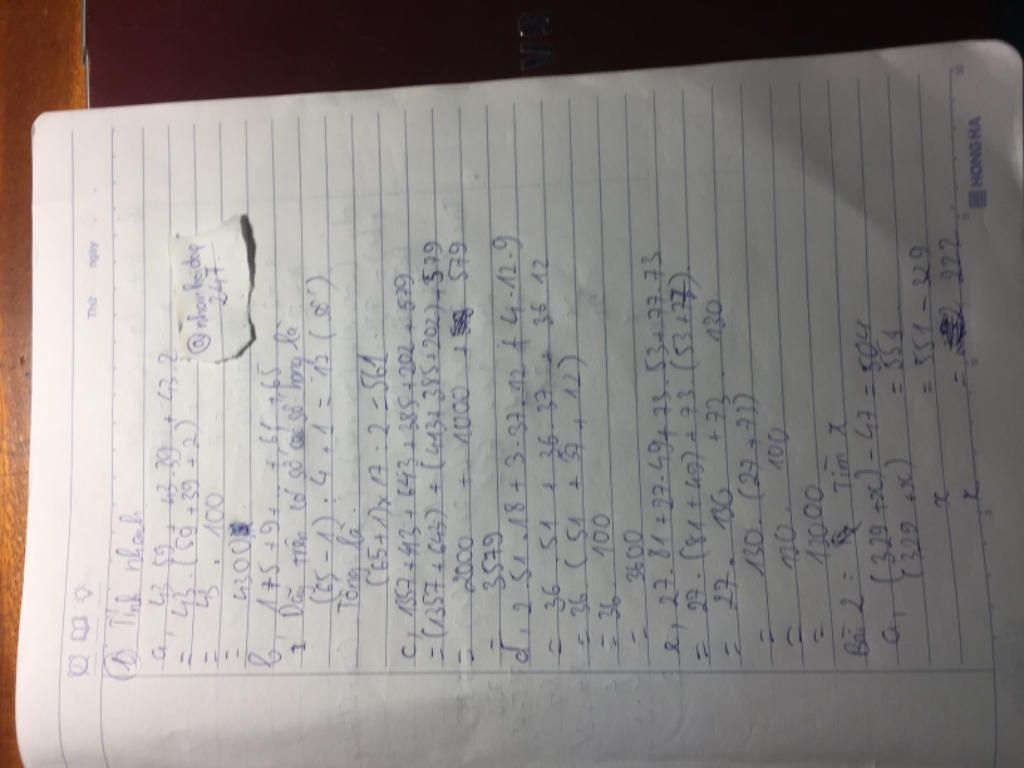 Thứ ngày
① Tính nhanh
@nhonhodep
247.
a, 43.59 + 43.39 + 43.2
= 43.(59 + 39 + 2)
= 43 . 100
= 4300
b, 1 + 5 + 9 + ... + 61 + 65
Dãy trên có số số hạng là
(65 - 1) : 4 + 1 = 17 (số)
Tổng là
(65+1) x 17 : 2 = 561
c, 1357 + 413 + 643 + 385 + 202 + 579
= (1357 + 643) + (413 + 385 + 202) + 579
= 2000 + 1000 + 579
= 3579
d, 2.51.18 + 3.37.12 + 4.12.9
= 36.51 + 36.37 + 36 12
= 36 (51 + 37 + 12)
= 36 100
= 3600
e, 27.81 + 27.49 + 73.53 + 77.73
= 27.(81 + 49) + 73 (53 + 77)
= 27. 130 + 73 . 130
= 130 . (27 + 73)
= 130 . 100
= 13000
Bài 2: Tìm x
a, (329 + x) - 47 = 504
(329 + x) = 551
x = 551 - 329
x = 222
HONG HA
VS